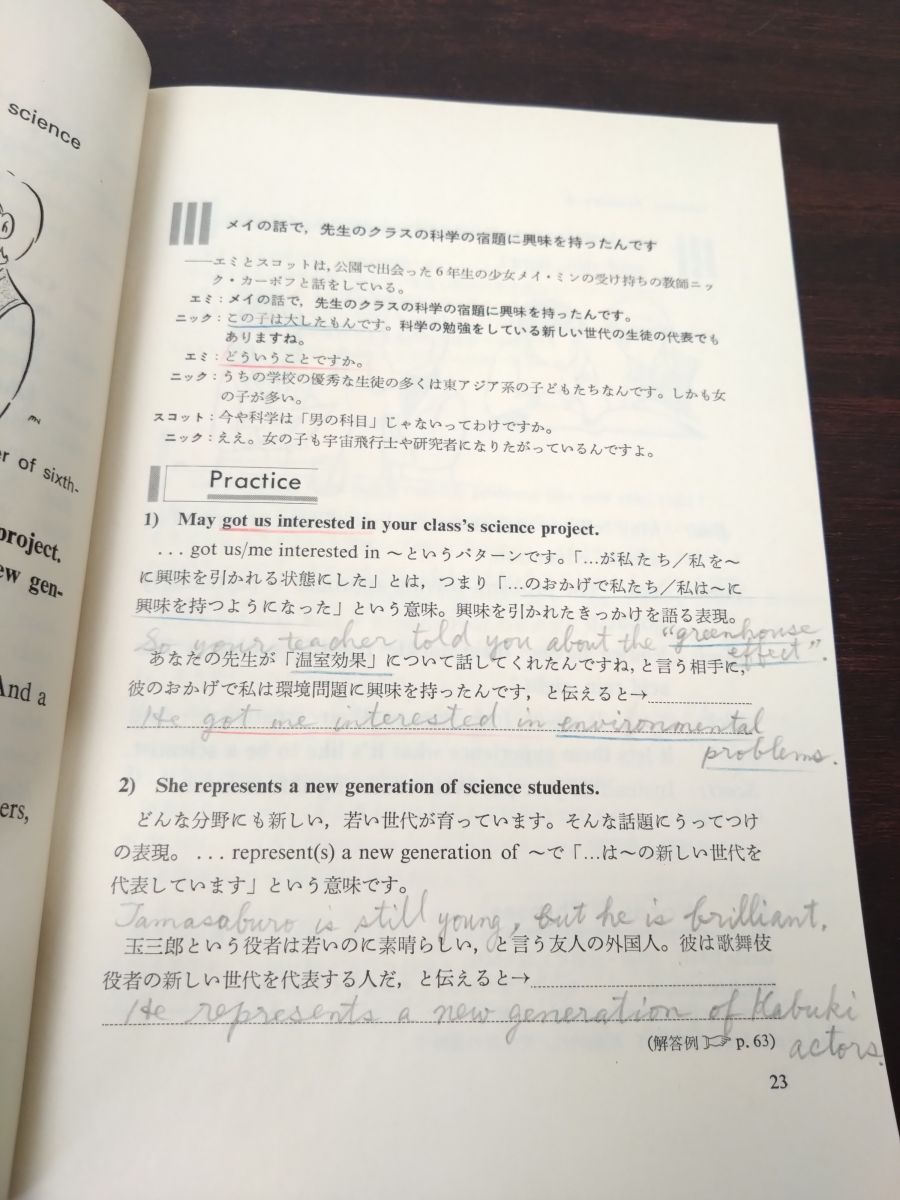 science
er of sixth-
project.
ew gen-
And a
ers,
III メイの話で，先生のクラスの科学の宿題に興味を持ったんです
——エミとスコットは，公園で出会った６年生の少女メイ・ミンの受け持ちの教師ニッ
ク・カーボフと話をしている。
エミ：メイの話で，先生のクラスの科学の宿題に興味を持ったんです。
ニック：この子は大したもんです。科学の勉強をしている新しい世代の生徒の代表でも
ありますね。
エミ：どういうことですか。
ニック：うちの学校の優秀な生徒の多くは東アジア系の子どもたちなんです。しかも女
の子が多い。
スコット：今や科学は「男の科目」じゃないってわけですか。
ニック：ええ。女の子も宇宙飛行士や研究者になりたがっているんですよ。
Practice
1) May got us interested in your class's science project.
. . . got us/me interested in ～というパターンです。「…が私たち／私を～
に興味を引かれる状態にした」とは，つまり「…のおかげで私たち／私は～に
興味を持つようになった」という意味。興味を引かれたきっかけを語る表現。
So your teacher told you about the "greenhouse
effect".
あなたの先生が「温室効果」について話してくれたんですね，と言う相手に，
彼のおかげで私は環境問題に興味を持ったんです，と伝えると→
He got me interested in environmental
problems.
2) She represents a new generation of science students.
どんな分野にも新しい，若い世代が育っています。そんな話題にうってつけ
の表現。 . . . represent(s) a new generation of ～で「…は～の新しい世代を
代表しています」という意味です。
Tamasaburo is still young, but he is brilliant.
玉三郎という役者は若いのに素晴らしい，と言う友人の外国人。彼は歌舞伎
役者の新しい世代を代表する人だ，と伝えると→
He represents a new generation of Kabuki
actors.
(解答例☞ p. 63)
23